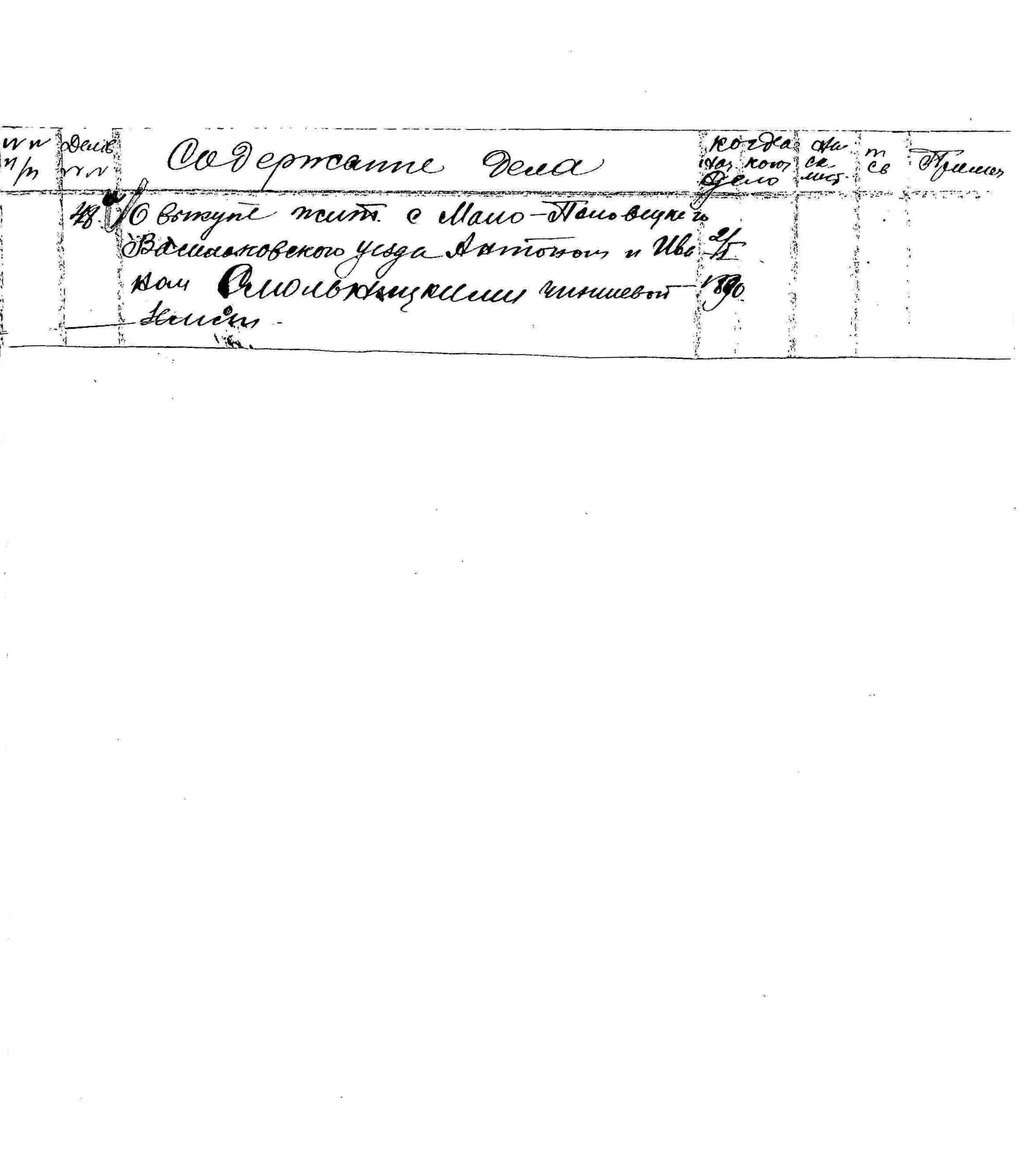 NN п/п Дела NN Содержание дела когда нач. конч. дело На ск. лист. Примеч
48 О выкупе жит. с Мало-Половецкого
Васильковского уезда Антоном и Ива 2/I
ном Смольницкими чиншевой 1890
земли.